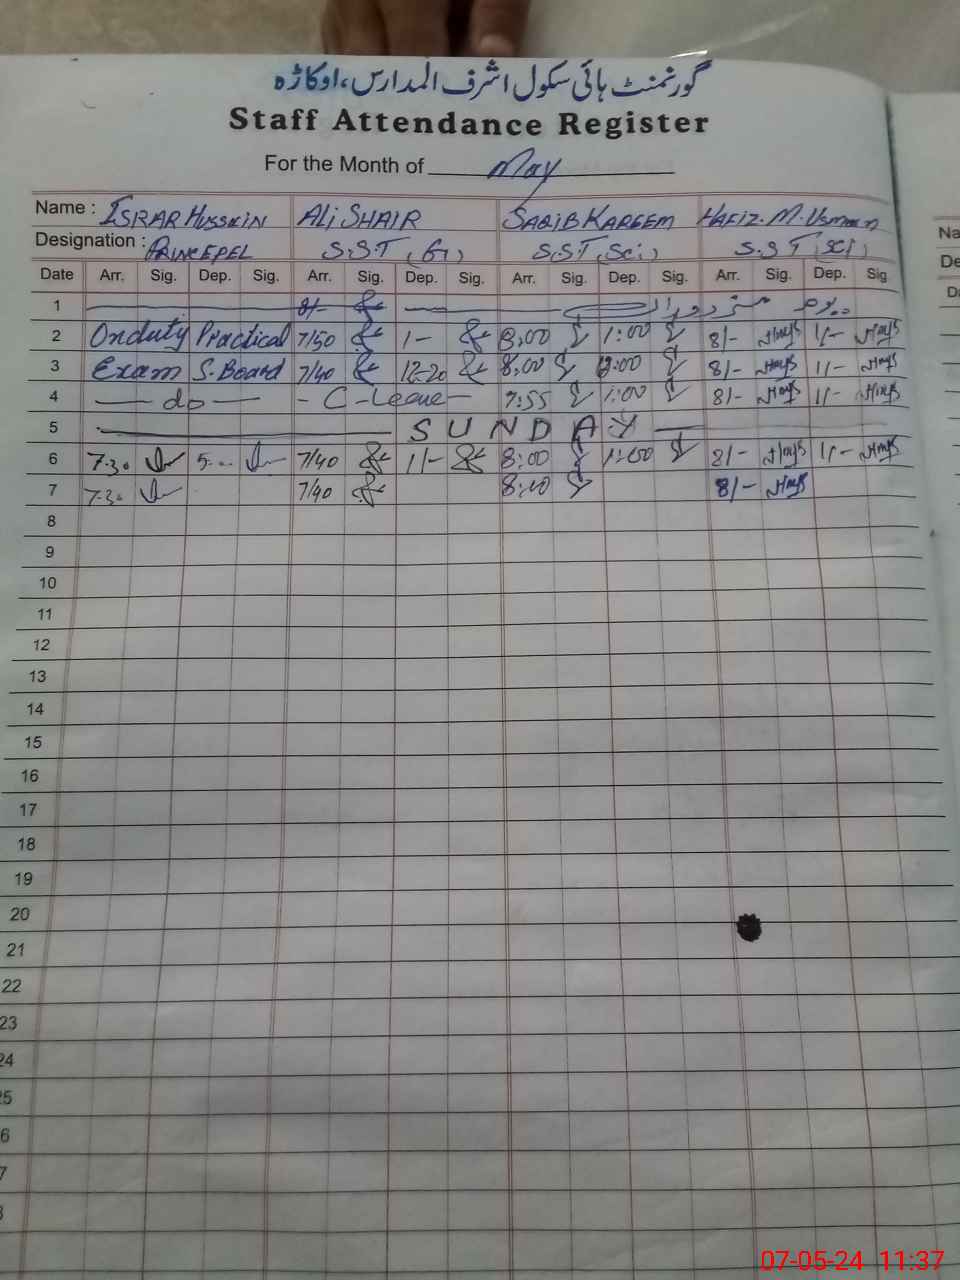 گورنمنٹ ہائی سکول اشرف المدارس، اوکاڑہ
Staff Attendance Register
For the Month of May
Name : ISRAR HUSSEIN ALI SHAIR SAQIB KAREEM HAFIZ. M. Usman
Designation : PRINCEPEL S.S.T (G) S.S.T (Sci) S.S.T (SCI)
Date Arr. Sig. Dep. Sig. Arr. Sig. Dep. Sig. Arr. Sig. Dep. Sig. Arr. Sig. Dep. Sig.
1 8/- یوم مزدوراں
2 Onduty Practical 7/50 1- 8:00 1:00 8/- 1/-
3 Exam S.Board 7/40 12-20 8:00 12:00 8/- 1/-
4 — do — - C-Leave - 7:55 1:00 8/- 1/-
5 SUNDAY
6 7.30 5... 7/40 1/- 8:00 1:00 8/- 1/-
7 7.30 7/40 8:10 8/-
8
9
10
11
12
13
14
15
16
17
18
19
20
21
22
23
24
25
6
7
Na
De
Da
07-05-24 11:37